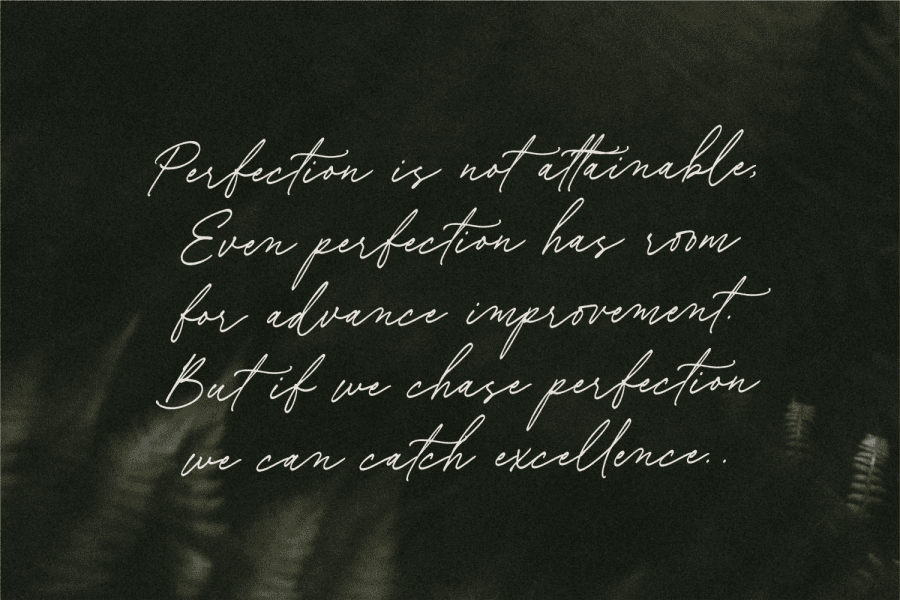 Perfection is not attainable,
Even perfection has room
for advance improvement.
But if we chase perfection
we can catch excellence..